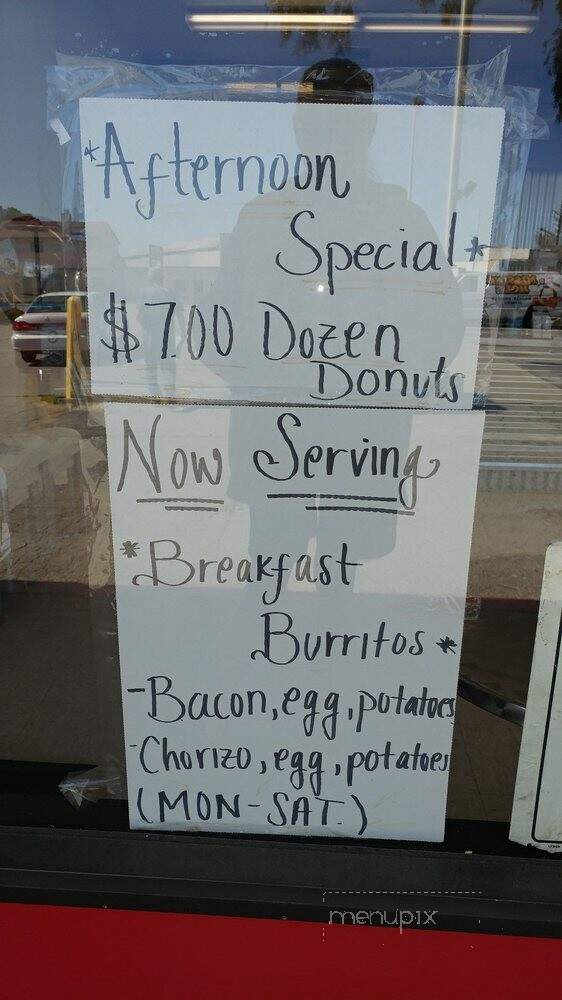 *Afternoon
Special*
$7.00 Dozen
Donuts
Now Serving
*Breakfast
Burritos*
-Bacon, egg, potatoes
-Chorizo, egg, potatoes
(MON-SAT.)
menupix